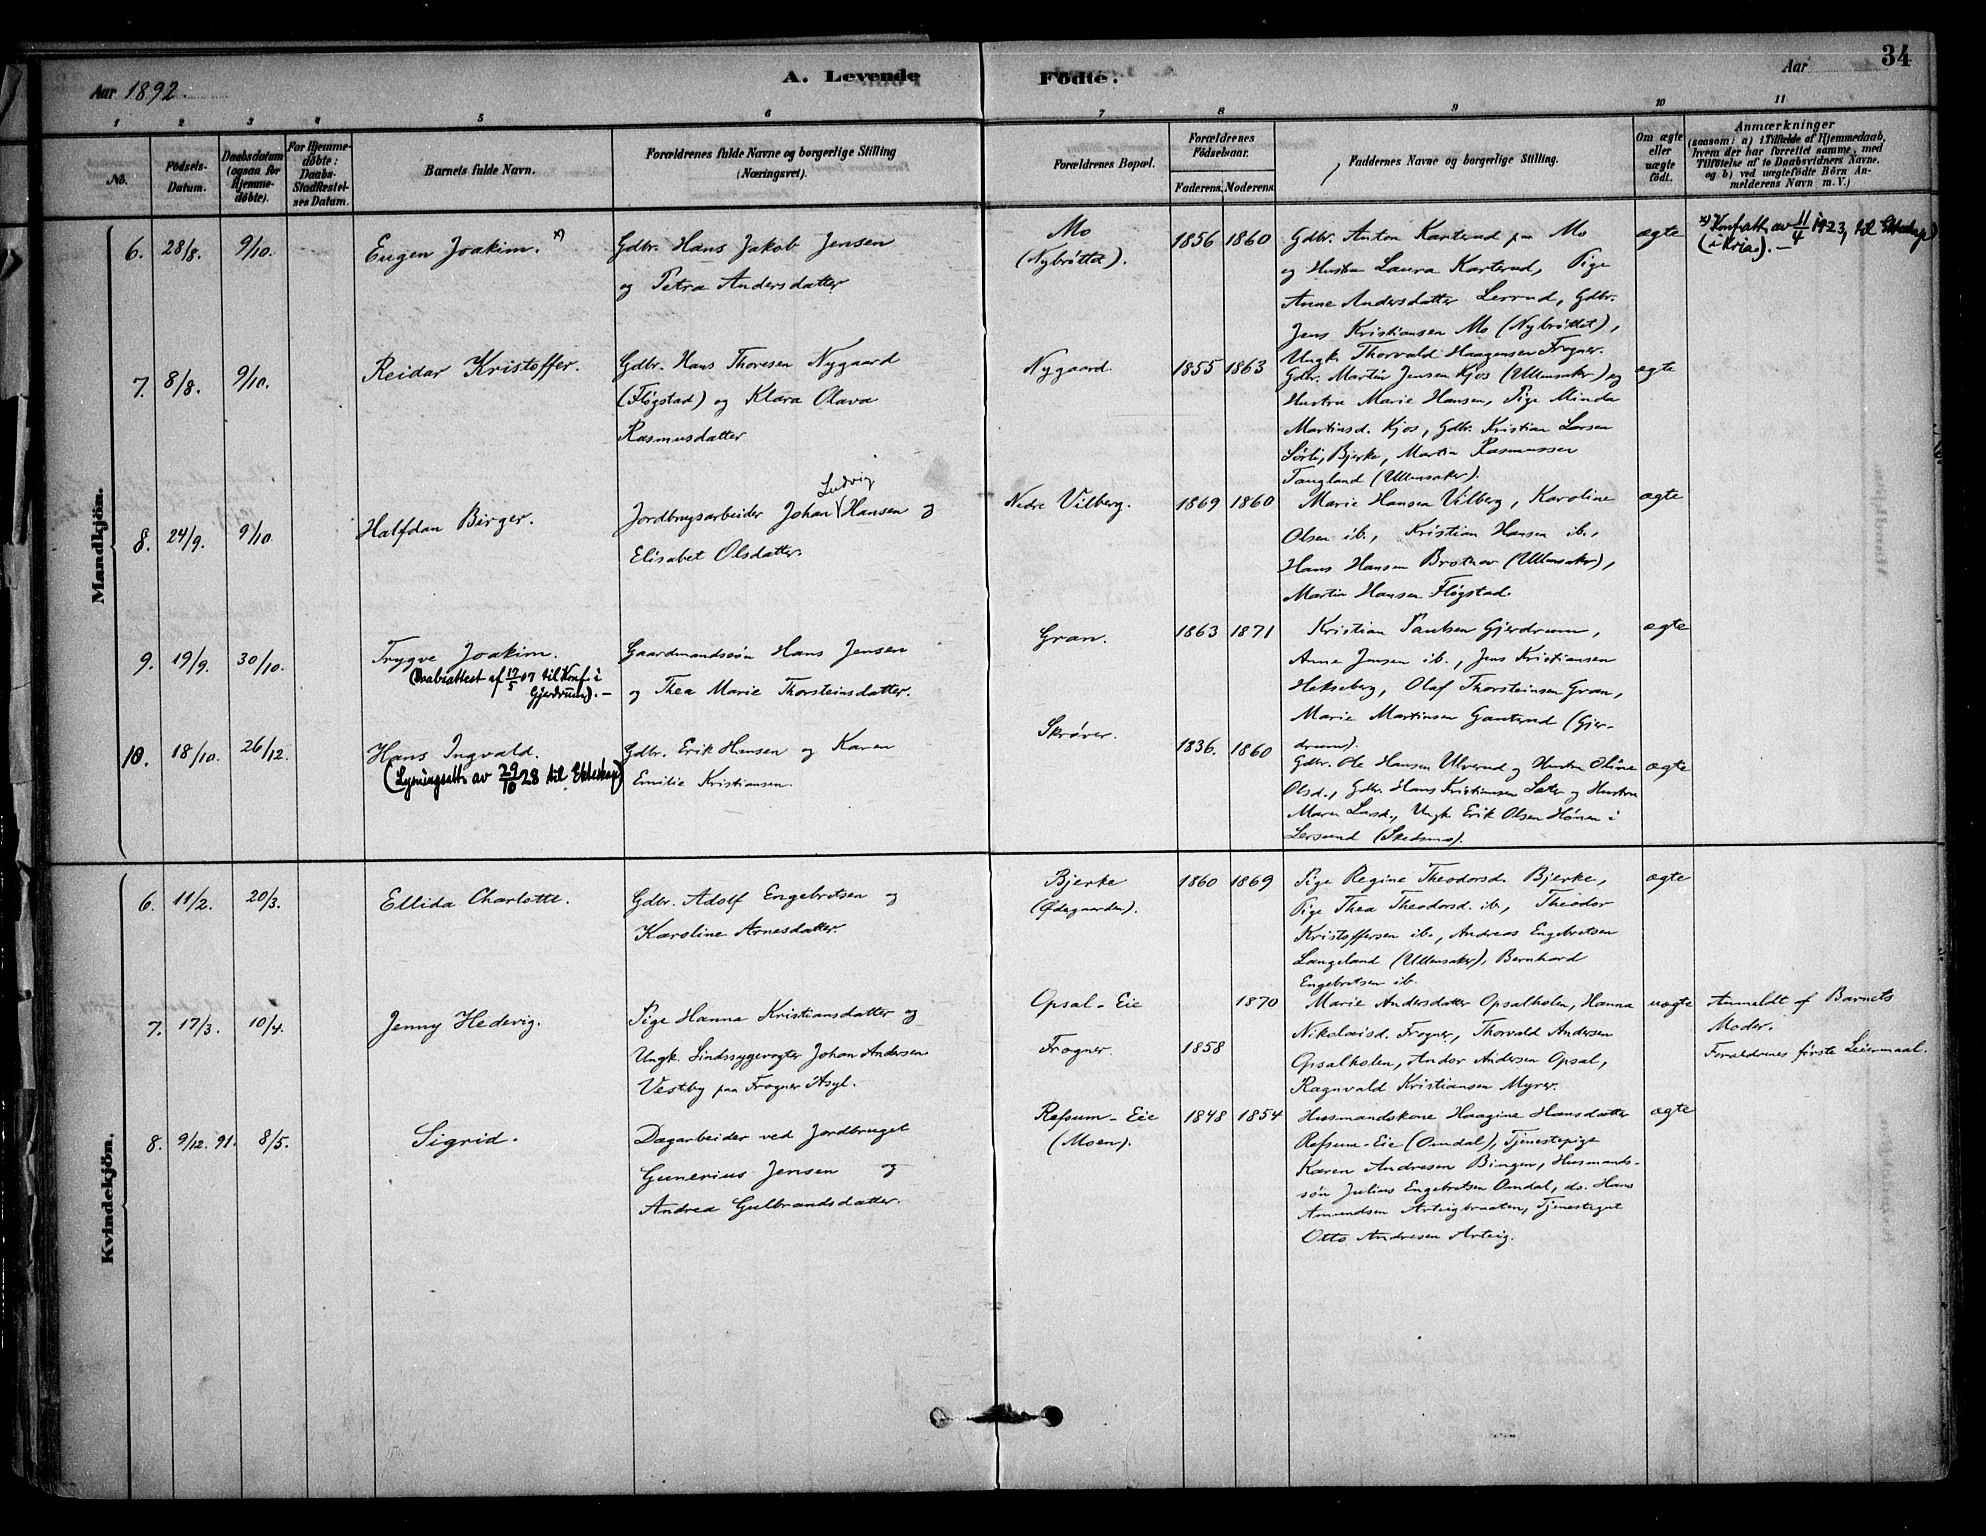 34
Aar 1892.
A. Levende Fødte.
Aar
1 2 3 4 5 6 7 8 9 10 11
No.
Fødsels-Datum.
Daabsdatum (ogsaa for Hjemmedøbte).
For Hjemmedøbte: Daabs-Stadfæstelses Datum.
Barnets fulde Navn.
Forældrenes fulde Navne og borgerlige Stilling (Næringsvei).
Forældrenes Bopæl.
Forældrenes Fødselsaar.
Faderens. Moderens.
Faddernes Navne og borgerlige Stilling.
Om ægte eller uægte født.
Anmærkninger
(saasom: a) i Tilfælde af Hjemmedaab, hvem der har forrettet samme, med Tilføielse af to Daabsvidners Navne, og b) ved uægtefødte Børn Anmelderens Navn m. V.)
Mandkjön.
6. 28/8. 9/10. Eugen Joakim. x)
Gdbr. Hans Jakob Jensen
og Petra Andersdatter
Mo
(Nybröttet).
1856 1860
Gdbr. Anton Karterud paa Mo
og Hustru Laura Karterud, Pige
Anne Andersdatter Lerrud, Gdbr.
Jens Kristiansen Mo (Nybröttet),
Ungk. Thorvald Haagensen Frogner.
ægte
x) av 11/4 1923, til Ektesk.
(i Kria). —
7. 8/8. 9/10. Reidar Kristoffer.
Gdbr. Hans Thoresen Nygaard
(Fløgstad) og Klara Olava
Rasmusdatter
Nygaard.
1855 1863
Gdbr. Martin Jensen Kjos (Ullensaker) og
Hustru Marie Hansen, Pige Minda
Martinsd. Kjos, Gdbr. Kristian Larsen
Sörli, Bjerke, Martin Rasmussen
Tangland (Ullensaker).
ægte
8. 24/9. 9/10. Halfdan Birger.
Ludvig
Jordbrugsarbeider Johan Hansen og
Elisabet Olsdatter.
Nedre Vilberg.
1869 1860
Marie Hansen Vilberg, Karoline
Olsen ib., Kristian Hansen ib.,
Hans Hansen Brotnov (Ullensaker),
Martin Hansen Fløgstad.
ægte
9. 19/9. 30/10. Trygve Joakim.
(Daabsattest af 17/5 07 til Konf. i
Gjerdrum). —
Gaardmandssøn Hans Jensen
og Thea Marie Thorsteinsdatter.
Gran.
1863 1871
Kristian Paulsen Gjerdrum,
Anne Jensen ib., Jens Kristiansen
Hekseberg, Olaf Thorsteinsen Gran,
Marie Martinsen Gauterud (Gjer-
drum).
ægte
10. 18/10. 26/12. Hans Ingvald.
(Lysningsatt. av 29/10 28 til Ekteskap)
Gdbr. Erik Hansen og Karen
Emilie Kristiansen.
Skrøver.
1836. 1860
Gdbr. Ole Hansen Ulverud og Hustru Oline
Olsd., Gdbr. Hans Kristiansen Sæter og Hustru
Maren Larsd., Ungk. Erik Olsen Hönen i
Lersund (Skedsmo).
ægte
Kvindekjön.
6. 11/2. 20/3. Ellida Charlotte.
Gdbr. Adolf Engebretsen og
Karoline Arnesdatter.
Bjerke
(Ødegaarden).
1860 1869
Pige Regine Theodorsd. Bjerke,
Pige Thea Theodorsd. ib., Theodor
Kristoffersen ib., Andreas Engebretsen
Langeland (Ullensaker), Bernhard
Engebretsen ib.
ægte
7. 17/3. 10/4. Jenny Hedevig.
Pige Hanna Kristiansdatter og
Ungk. Sindssygevogter Johan Andersen
Vestby paa Frogner Asyl.
Opsal-Eie
Frogner.
1870
1858
Marie Andersdatter Opsalholen, Hanna
Nikolaisd. Frogner, Thorvald Andersen
Opsalholen, Andor Andersen Opsal,
Ragnvald Kristiansen Myrer.
uægte
Anmeldt af Barnets
Moder.
Forældrenes første Leiermaal.
8. 9/12. 91. 8/5. Sigrid.
Dagarbeider ved Jordbruget
Gunerius Jensen og
Andrea Gulbrandsdatter.
Refsum-Eie
(Moen).
1848 1854
Husmandskone Haagine Hansdatter
Refsum-Eie (Omdal), Tjenestepige
Karen Andresen Bingen, Husmands-
søn Julius Engebretsen Omdal, do. Hans
Amundsen Arteigbraaten, Tjenestegut
Otto Andresen Arteig.
ægte